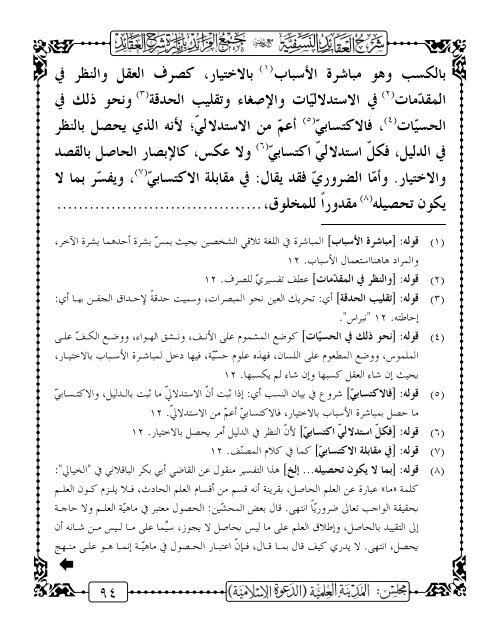 شرح العقائد النسفية مع جمع الفرائد بإنارة شرح العقائد
بالكسب وهو مباشرة الأسباب(١) بالاختيار، كصرف العقل والنظر في
المقدّمات(٢) في الاستدلاليّات والإصغاء وتقليب الحدقة(٣) ونحو ذلك في
الحسيّات(٤)، فالاكتسابيّ(٥) أعمّ من الاستدلاليّ؛ لأنه الذي يحصل بالنظر
في الدليل، فكلّ استدلاليّ اكتسابيّ(٦) ولا عكس، كالإبصار الحاصل بالقصد
والاختيار. وأمّا الضروريّ فقد يقال: في مقابلة الاكتسابيّ(٧)، ويفسّر بما لا
يكون تحصيله(٨) مقدوراً للمخلوق،......................................
(١) قوله: [مباشرة الأسباب] المباشرة في اللغة تلاقي الشخصين بحيث يمسّ بشرة أحدهما بشرة الآخر،
والمراد هاهنا استعمال الأسباب. ١٢
(٢) قوله: [والنظر في المقدّمات] عطف تفسيريّ للصرف. ١٢
(٣) قوله: [تقليب الحدقة] أي: تحريك العين نحو المبصرات، وسميت حدقةً لإحداق الجفن بها أي:
إحاطته. ١٢ "نبراس".
(٤) قوله: [نحو ذلك في الحسيّات] كوضع المشموم على الأنف، ونشق الهواء، ووضع الكفّ على
الملموس، ووضع المطعوم على اللسان، فهذه علوم حسيّة، فيها دخل لمباشرة الأسباب بالاختيار،
بحيث إن شاء العقل كسبها وإن شاء لم يكسبها. ١٢
(٥) قوله: [فالاكتسابيّ] شروع في بيان النسب أي: إذا ثبت أنّ الاستدلاليّ ما ثبت بالدليل، والاكتسابيّ
ما حصل بمباشرة الأسباب بالاختيار، فالاكتسابيّ أعمّ من الاستدلاليّ. ١٢
(٦) قوله: [فكلّ استدلاليّ اكتسابيّ] لأنّ النظر في الدليل أمر يحصل بالاختيار. ١٢
(٧) قوله: [في مقابلة الاكتسابيّ] كما في كلام المصنّف. ١٢
(٨) قوله: [بما لا يكون تحصيله... إلخ] هذا التفسير منقول عن القاضي أبي بكر الباقلاني في "الخيالي":
كلمة «ما» عبارة عن العلم الحاصل، بقرينة أنه قسم من أقسام العلم الحادث، فلا يلزم كون العلم
بحقيقة الواجب تعالى ضروريّاً انتهى. قال بعض المحشّين: الحصول معتبر في ماهيّة العلم ولا حاجة
إلى التقييد بالحاصل، وإطلاق العلم على ما ليس بحاصل لا يجوز، سيّما على ما ليس من شانه أن
يحصل، انتهى. لا يدري كيف قال بما قال، فإنّ اعتبار الحصول في ماهيّة إنما هو على منهج
مجلس: المدينة العلمية (الدعوة الإسلامية)
٩٤